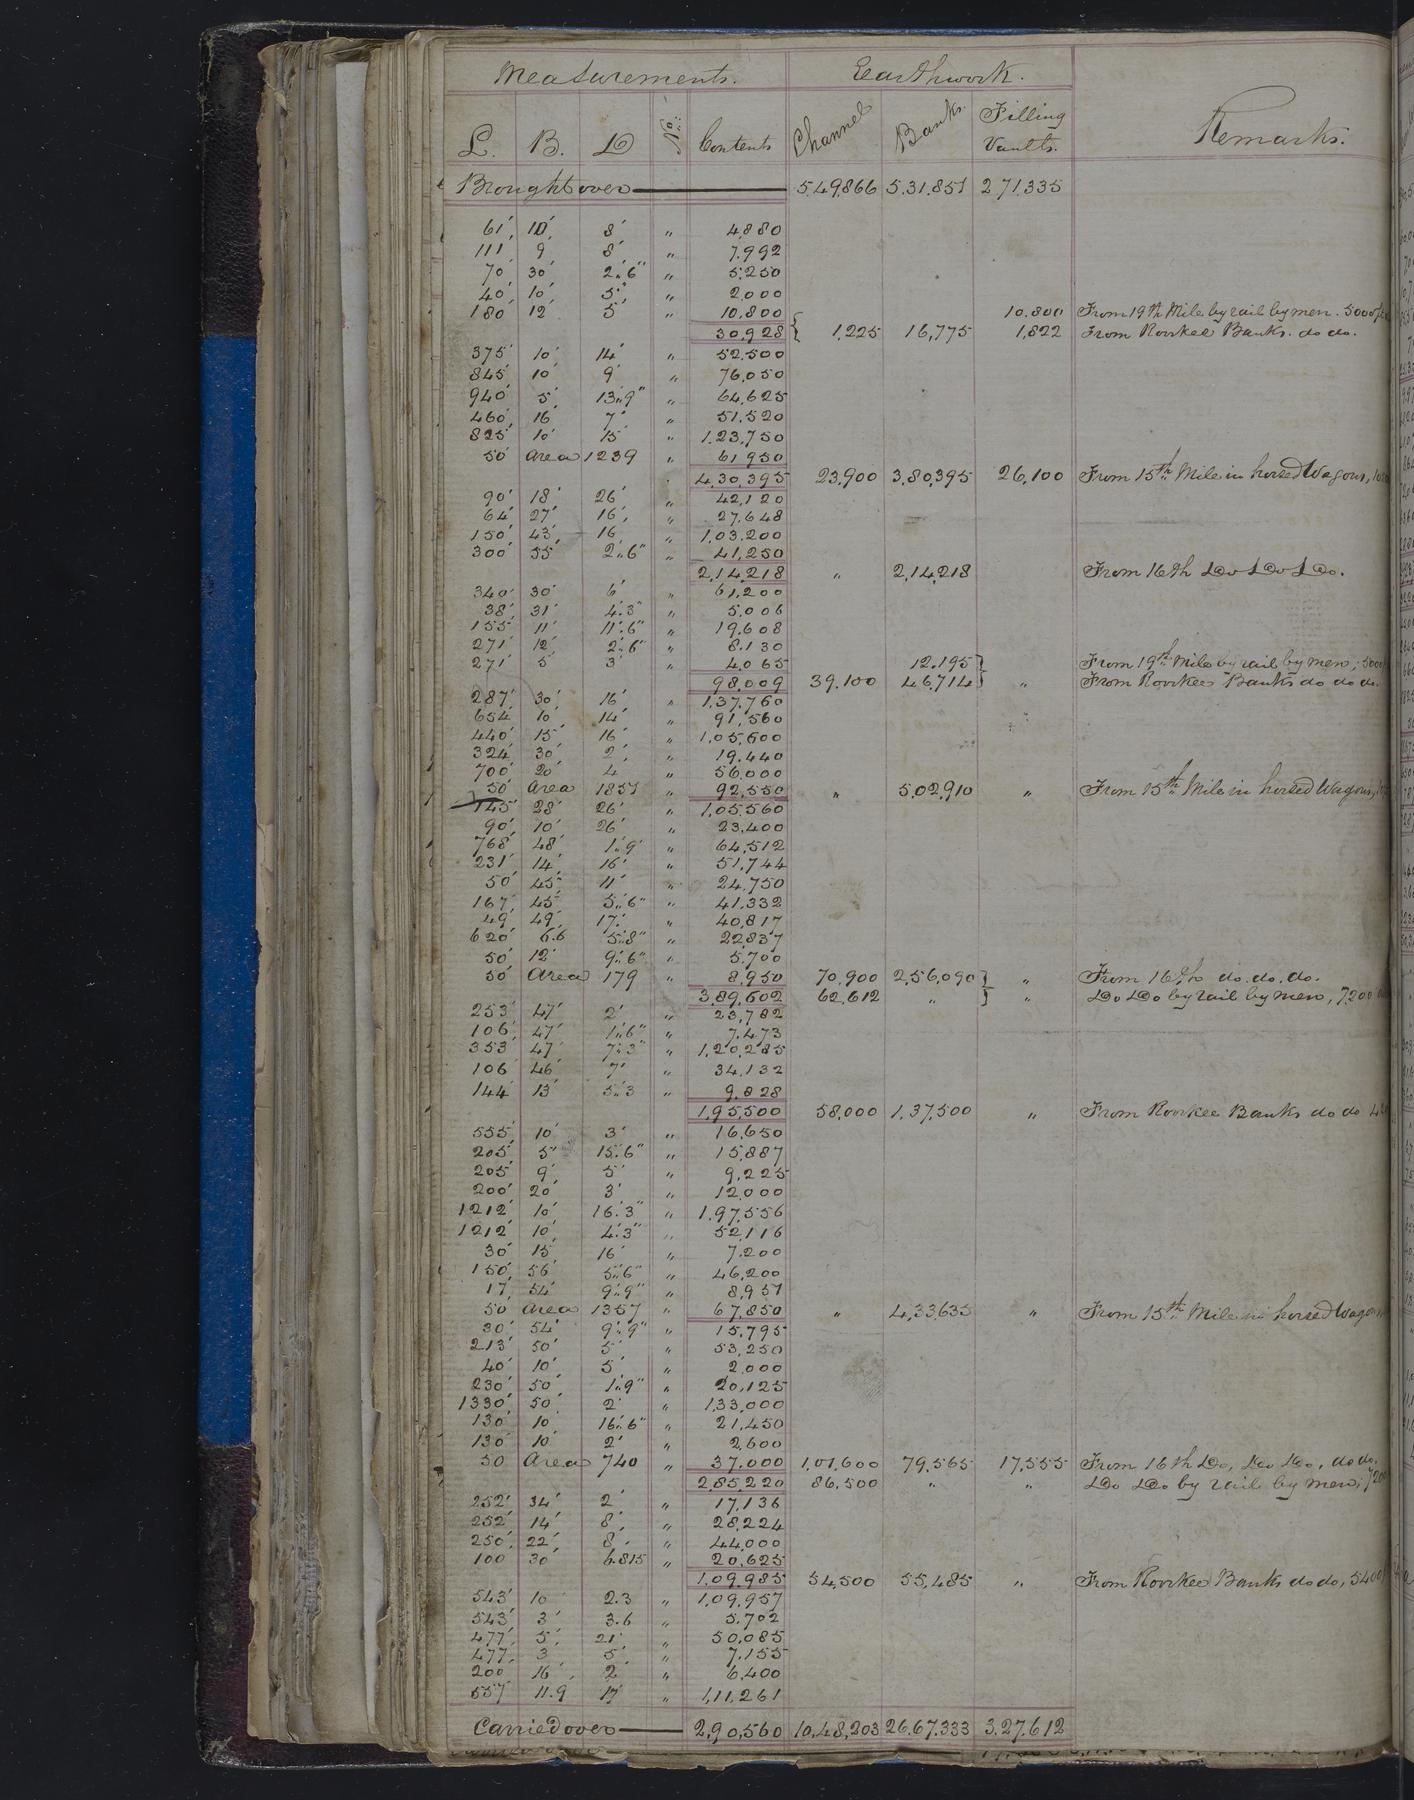 Measurements. Earthwork.
L. B. D No. Contents Channel Banks. Filling Vaults. Remarks.
Brought over 5,49,866 5,31,851 2,71,335
61' 10' 8' " 4,880
111' 9' 8' " 7,992
70 30' 2"6" " 5,250
40' 10' 5' " 2,000
180 12 5' " 10,800 10,800 From 19th Mile by rail by men. 5000
30,928 { 1,225 16,775 1,622 From Roorkee Banks. do do.
375' 10' 14' " 52,500
845' 10' 9' " 76,050
940' 5' 13"9" " 64,625
460' 16' 7' " 51,520
825' 10' 15' " 1,23,750
50' Area 1239 " 61,950
4,30,395 23,900 3,80,395 26,100 From 15th Mile in horsed Wagons,
90' 18' 26' " 42,120
64' 27' 16' " 27,648
150' 43' 16 " 1,03,200
300' 55' 2"6" " 41,250
2,14,218 " 2,14,218 From 16th Do Do Do.
340' 30' 6' " 61,200
38' 31' 4"3" " 5,006
155' 11' 11"6" " 19,608
271' 12' 2"6" " 8,130
271' 5' 3' " 4,065 12,195 } From 19th Mile by rail by men, 5000
98,009 39,100 46,714 } " From Roorkee Banks do do do.
287' 30' 16' " 1,37,760
654 10' 14' " 91,560
440' 15' 16' " 1,05,600
324' 30' 2' " 19,440
700' 20' 4 " 56,000
50' Area 1851 " 92,550 " 5,02,910 " From 15th Mile in horsed Wagons,
145' 28' 26' " 1,05,560
90' 10' 26' " 23,400
768' 48' 1"9' " 64,512
231' 14' 16' " 51,744
50' 45' 11' " 24,750
167' 45' 5"6" " 41,332
49' 49' 17' " 40,817
620' 6.6 5"8" " 22,837
50' 12' 9"6" " 5,700
50' Area 179 " 8,950 70,900 2,56,090 } " From 16th do. do. do.
3,89,602 62,612 " } " Do Do by rail by men, 7,200
253' 47' 2' " 23,782
106' 47' 1"6" " 7,473
353' 47' 7"3" " 1,20,285
106 46' 7' " 34,132
144' 13' 5"3 " 9,828
1,95,500 58,000 1,37,500 " From Roorkee Banks do do
555' 10' 3' " 16,650
205' 5' 15"6" " 15,887
205' 9' 5' " 9,225
200' 20' 3' " 12,000
1212' 10' 16"3" " 1,97,556
1212' 10' 4"3" " 52,116
30' 15' 16' " 7,200
150' 56' 5"6" " 46,200
17' 54' 9"9" " 8,951
50 Area 1357 " 67,850 " 4,33,635 " From 15th Mile in horsed Wagons
30' 54' 9"9" " 15,795
213' 50' 5' " 53,250
40' 10' 5' " 2,000
230' 50' 1"9" " 20,125
1330' 50' 2' " 1,33,000
130' 10' 16"6" " 21,450
130' 10' 2' " 2,600
50 Area 740 " 37,000 1,01,600 79,565 17,555 From 16th Do, Do Do, do do.
2,85,220 86,500 " " Do Do by rail by men, 7200
252' 34' 2' " 17,136
252' 14' 8' " 28,224
250' 22' 8' " 44,000
100 30' 6.815 " 20,625
1,09,985 54,500 55,485 " From Roorkee Banks do do, 5400
543' 10 2.3 " 1,09,957
543' 3' 3.6 " 5,702
477' 5' 21' " 50,085
477' 3 5' " 7,155
200 16' 2' " 6,400
557' 11.9 17' " 1,11,261
Carried over 2,90,560 10,48,203 26,67,333 3,27,612